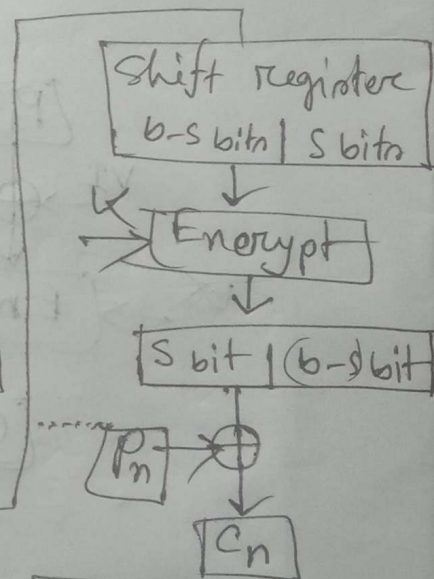 Shift register
b-s bits | s bits
K
Encrypt
s bit | (b-s) bit
Pn
Cn